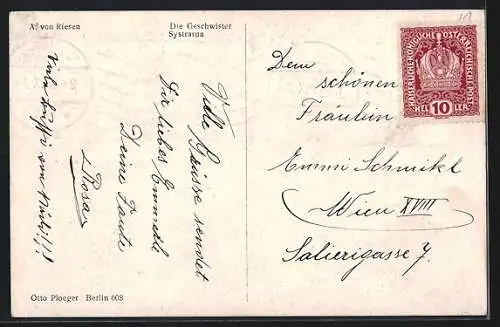 A. von Riesen
Die Geschwister
Systrarna
Viele Grüsse sendet
Dir liebes Emmerle
Deine Tante
Rosa
Viele Bussi von
Dem
schönen
Fräulein
Emmi Schmikl
Wien XVIII
Salierigasse 7.
KAISERLICHE KÖNIGLICHE ÖSTERREICHISCHE POST
HEL 10 LER
Otto Ploeger Berlin 608